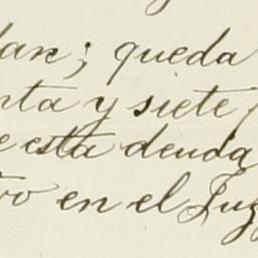 dare; queda
nta y siete
e esta deuda
ro en el Juz